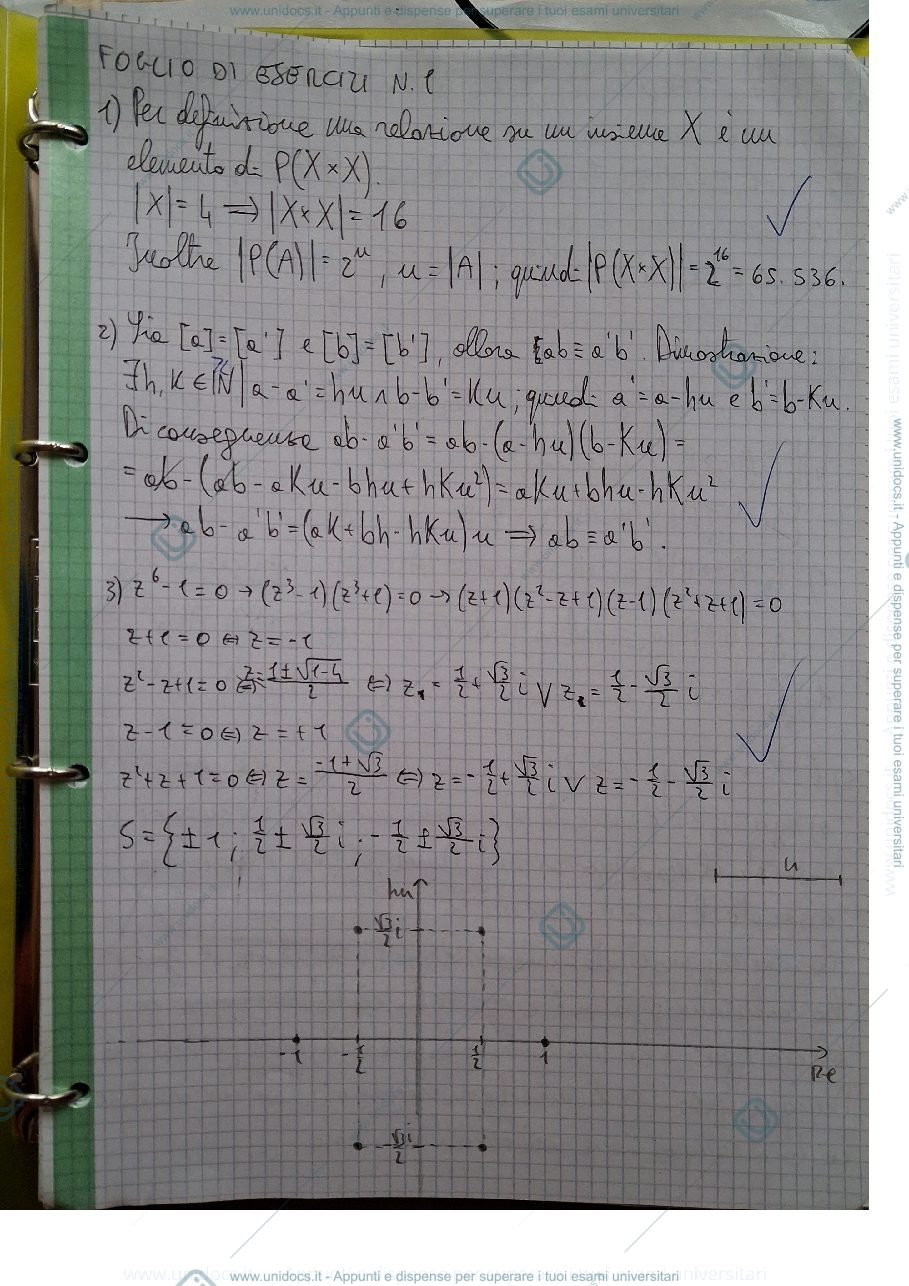 www.unidocs.it - Appunti e dispense per superare i tuoi esami universitari
FOGLIO DI ESERCIZI N. 1
1) Per definizione una relazione su un insieme X è un
elemento di P(X×X).
|X|=4 ⟹ |X×X|=16
Inoltre |P(A)|=2ⁿ, n=|A|; quindi |P(X×X)|=2¹⁶=65.536.
2) Sia [a]=[a'] e [b]=[b'], allora ab≡a'b'. Dimostrazione:
∃h,K∈ℤ|a-a'=hn∧b-b'=Kn; quindi a'=a-hn e b'=b-Kn.
Di conseguenza ab-a'b'=ab-(a-hn)(b-Kn)=
=ab-(ab-aKn-bhn+hKn²)=aKn+bhn-hKn²
⟶ab-a'b'=(aK+bh-hKn)n ⟹ ab≡a'b'.
3) z⁶-1=0→(z³-1)(z³+1)=0→(z+1)(z²-z+1)(z-1)(z²+z+1)=0
z+1=0⇔z=-1
z²-z+1=0⇔z=(1±√(1-4))/2 ⇔ z₁=1/2+√3/2 i ∨ z₂=1/2-√3/2 i
z-1=0⇔z=+1
z²+z+1=0⇔z=(-1±√3)/2 ⇔ z=-1/2+√3/2 i ∨ z=-1/2-√3/2 i
S={±1; 1/2±√3/2 i; -1/2±√3/2 i}
u
Im
√3/2 i
-1 -1/2 1/2 1
Re
-√3/2 i
www.unidocs.it - Appunti e dispense per superare i tuoi esami universitari
www.unidocs.it - Appunti e dispense per superare i tuoi esami universitari